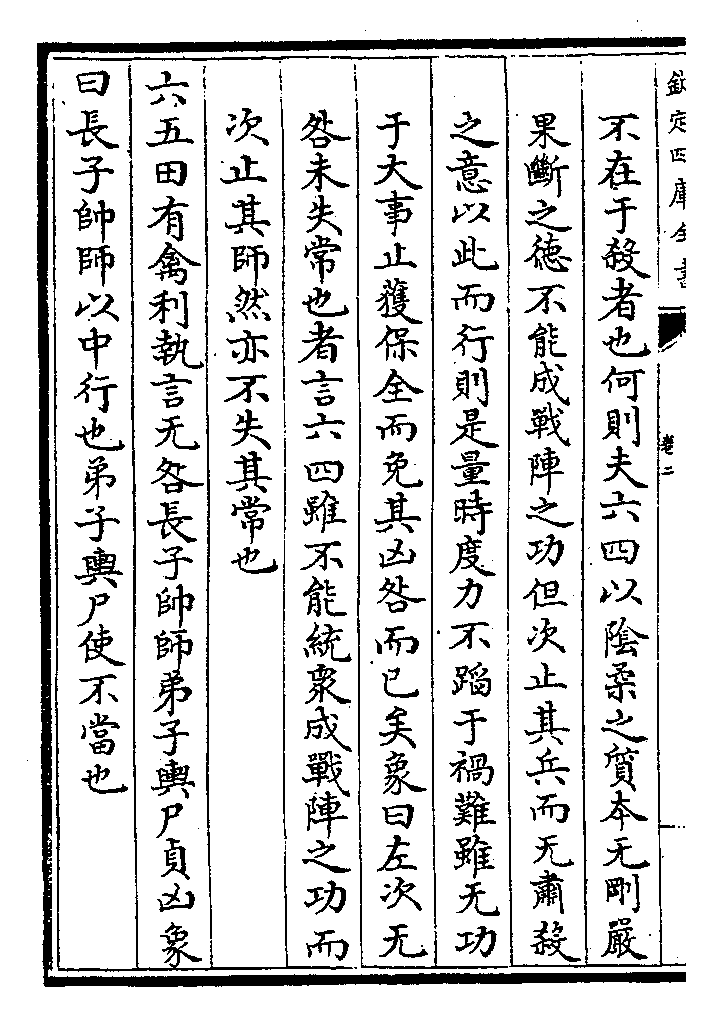 欽定四庫全書 卷二
不在于殺者也何則夫六四以陰柔之質本无剛嚴
果斷之德不能成戰陣之功但次止其兵而无肅殺
之意以此而行則是量時度力不蹈于禍難雖无功
于大事止獲保全而免其凶咎而已矣象曰左次无
咎未失常也者言六四雖不能統衆成戰陣之功而
次止其師然亦不失其常也
六五田有禽利執言无咎長子帥師弟子輿尸貞凶象
曰長子帥師以中行也弟子輿尸使不當也